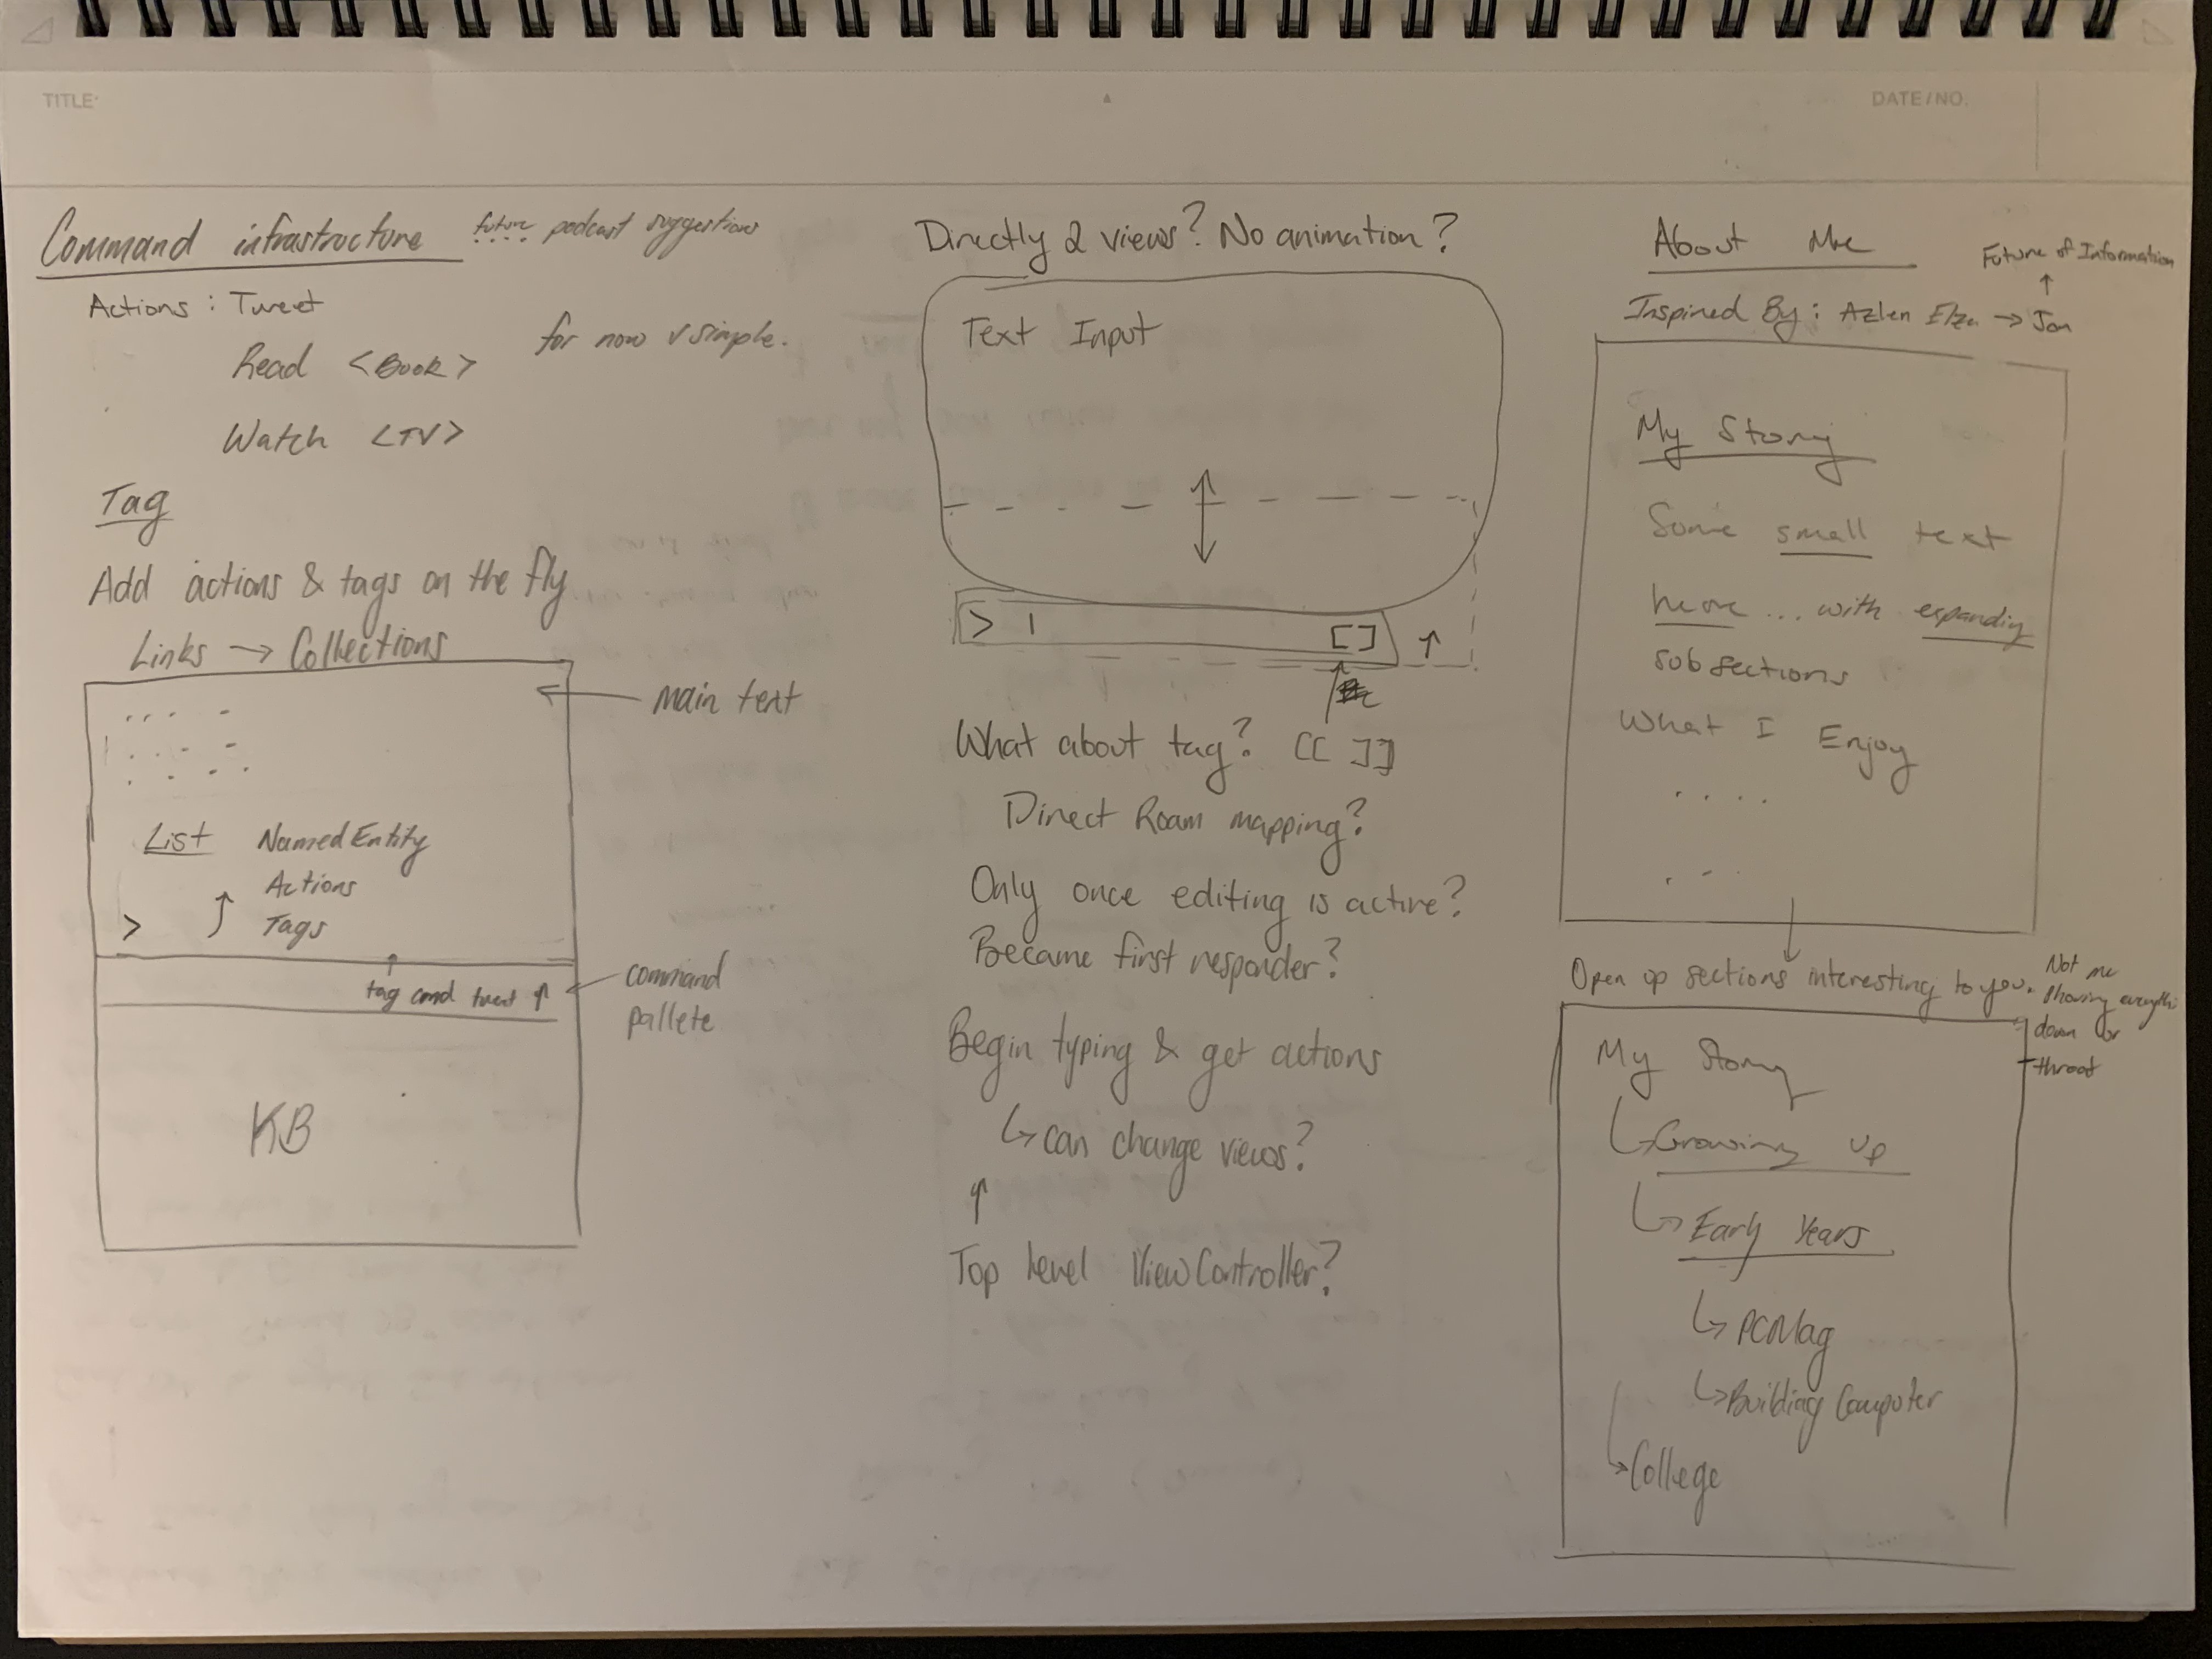 TITLE:
DATE/NO.
Command infrastructure
future podcast suggestions
Actions : Tweet
Read <Book>
for now v simple.
Watch <TV>
Tag
Add actions & tags on the fly
Links → Collections
main text
List NamedEntity
Actions
> Tags
tag cmd tweet ↑
command
pallete
KB
Directly 2 views? No animation?
Text Input
> | [] ↑
What about tag? [[ ]]
Direct Roam mapping?
Only once editing is active?
Became first responder?
Begin typing & get actions
↳ can change views?
↑
Top Level ViewController?
About Me
Future of Information
↑
Inspired By: Azlen → Jon
My Story
Some small text
here ... with expanding
subsections
What I Enjoy
. . . .
Open up sections interesting to you.
Not me
shoving everything
down ur
throat
My Story
↳ Growing up
↳ Early Years
↳ PCMag
↳ Building Computer
↳ College